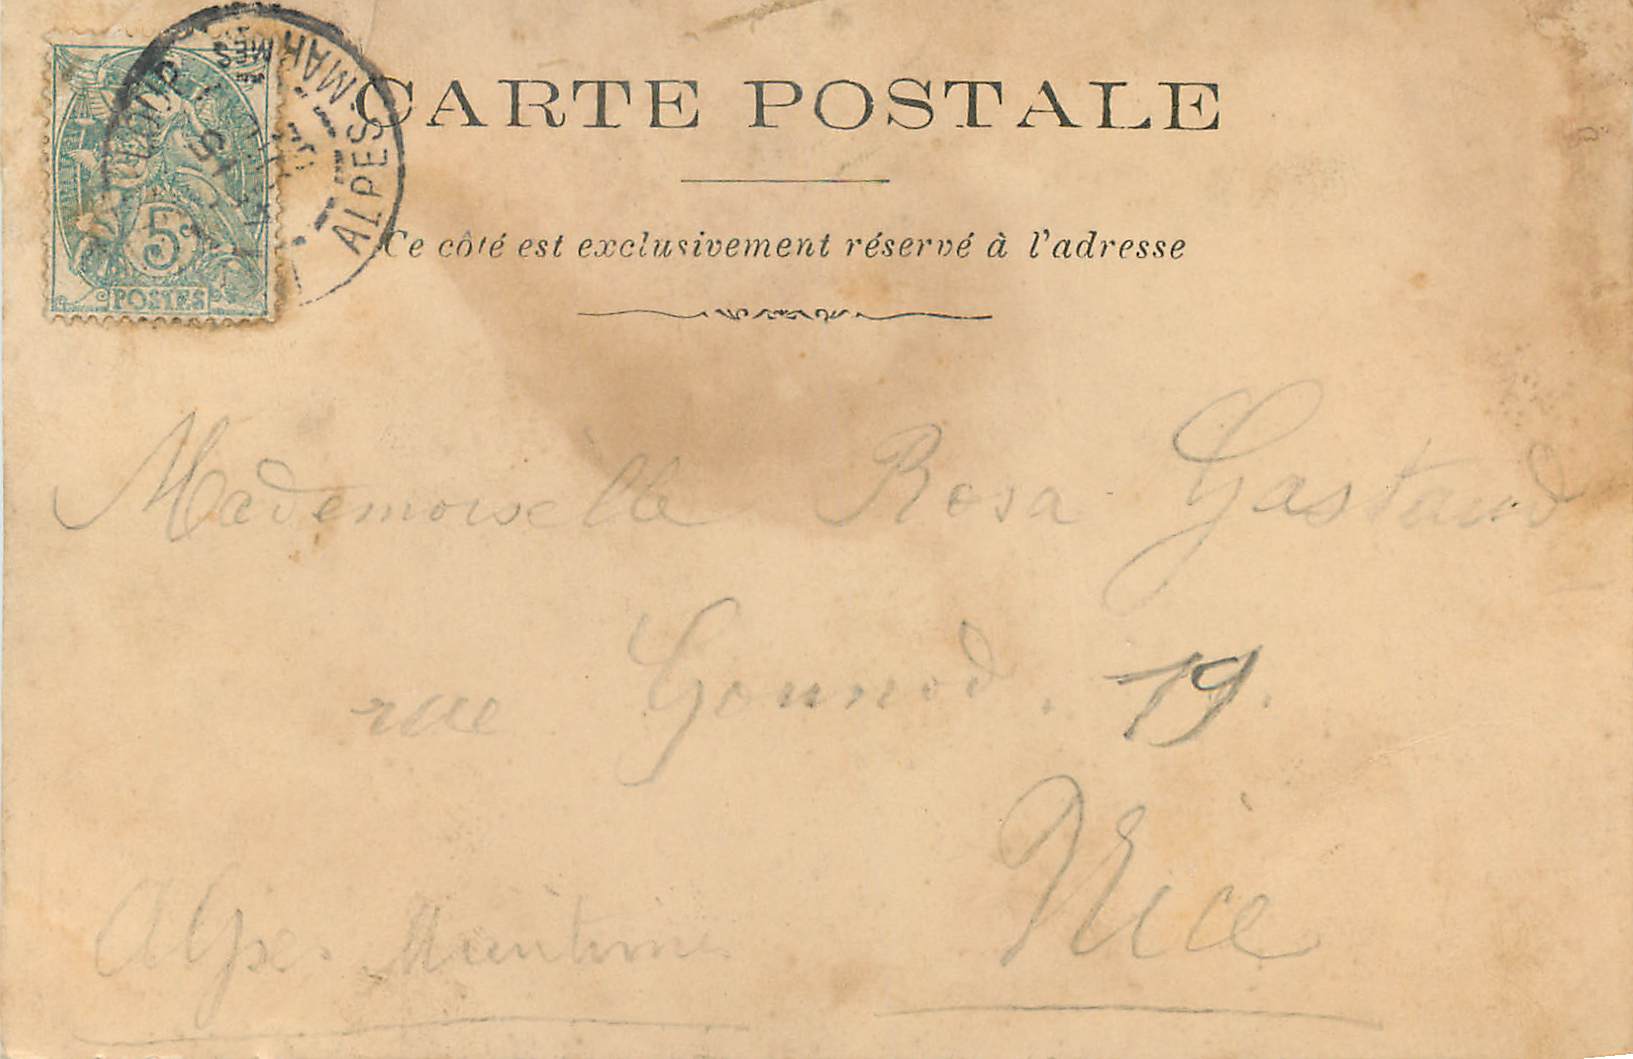 CARTE POSTALE
Ce côté est exclusivement réservé à l'adresse
5c
POSTES
ALPES-MARMES
15
Mademoiselle Rosa Gastaud
rue Gounod. 19.
Nice
Alpes Maritimes